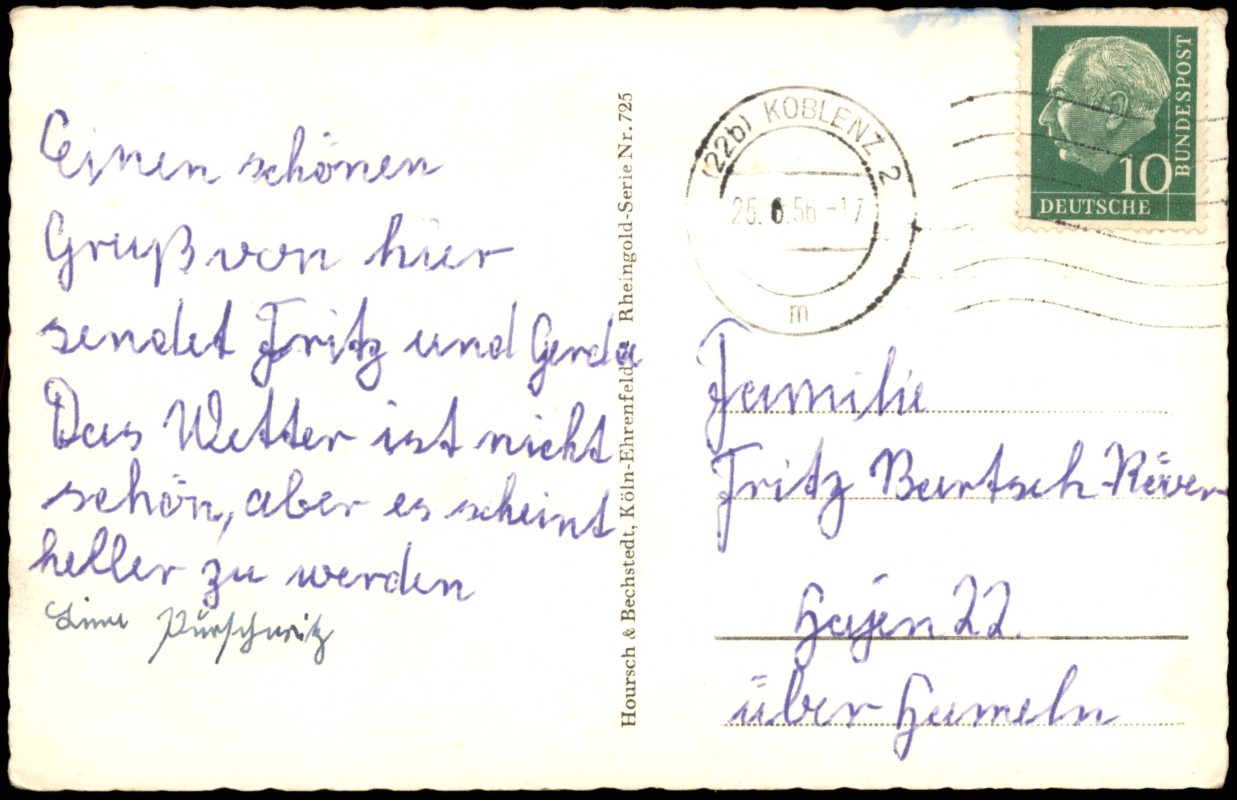 Einen schönen
Gruß von hier
sendet Fritz und Gerda
Das Wetter ist nicht
schön, aber es scheint
heller zu werden
Hoursch & Bechstedt, Köln-Ehrenfeld Rheingold-Serie Nr. 725
(22b) KOBLENZ 2
25. 6.56 -17
m
10
DEUTSCHE
BUNDESPOST
Familie
Fritz Bartsch-Röver
Hajen 22.
über Hameln